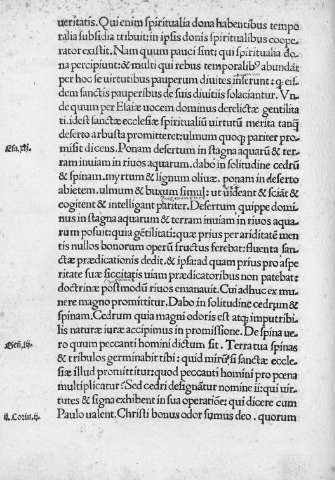 ueritatis. Qui enim spiritualia dona habentibus tempo
ralia subsidia tribuit: in ipsis donis spiritualibus coope
rator existit. Nam quum pauci sint: qui spiritualia do
na percipiunt: & multi qui rebus temporalibꝰ abundãt
per hoc se uirtutibus pauperum diuites inserunt: q̃ eis
dem sanctis pauperibus de suis diuitiis solaciantur. Vn
de quum per Esaiæ uocem dominus derelictæ gentilita
ti. idest sanctæ ecclesiæ spiritualiũ uirtutũ merita tanq̃
deserto arbusta promitteret: ulmum quoq; pariter pro
misit dicens. Ponam desertum in stagna aquarũ & ter
Esa. xli.
ram inuiam in riuos aquarum. dabo in solitudine cedrũ
& spinam. myrtum & lignum oliuæ. ponam in deserto
abietem. ulmum & buxum simul: ut uideant & sciãt &
cogitent & intelligant pariter. Desertum quippe domi
nus in stagna aquarum & terram inuiam in riuos aqua
rum posuit: quia gẽtilitati: quæ prius per ariditatẽ men
tis nullos bonorum operũ fructus ferebat: fluenta san
ctæ prædicationis dedit. & ipsa: ad quam prius pro aspe
ritate suæ siccitatis uiam prædicatoribus non patebat:
doctrinæ postmodũ riuos emanauit. Cui adhuc ex mu
nere magno promittitur. Dabo in solitudine cedrum &
spinam. Cedrum quia magni odoris est atq; imputribi
lis naturæ iuræ accipimus in promissione. De spina ue
Gen. iii.
ro quum peccanti homini dictum sit. Terra tua spinas
& tribulos germinabit tibi: quid mirũ si sanctæ eccle
siæ illud promittitur: quod peccanti homini pro pœna
multiplicatur? Sed cedri designãtur nomine ii: qui uir
tutes & signa exhibent in sua operatiõe: qui dicere cum
ii. Corin. ii.
Paulo ualent. Christi bonus odor sumus deo. quorum